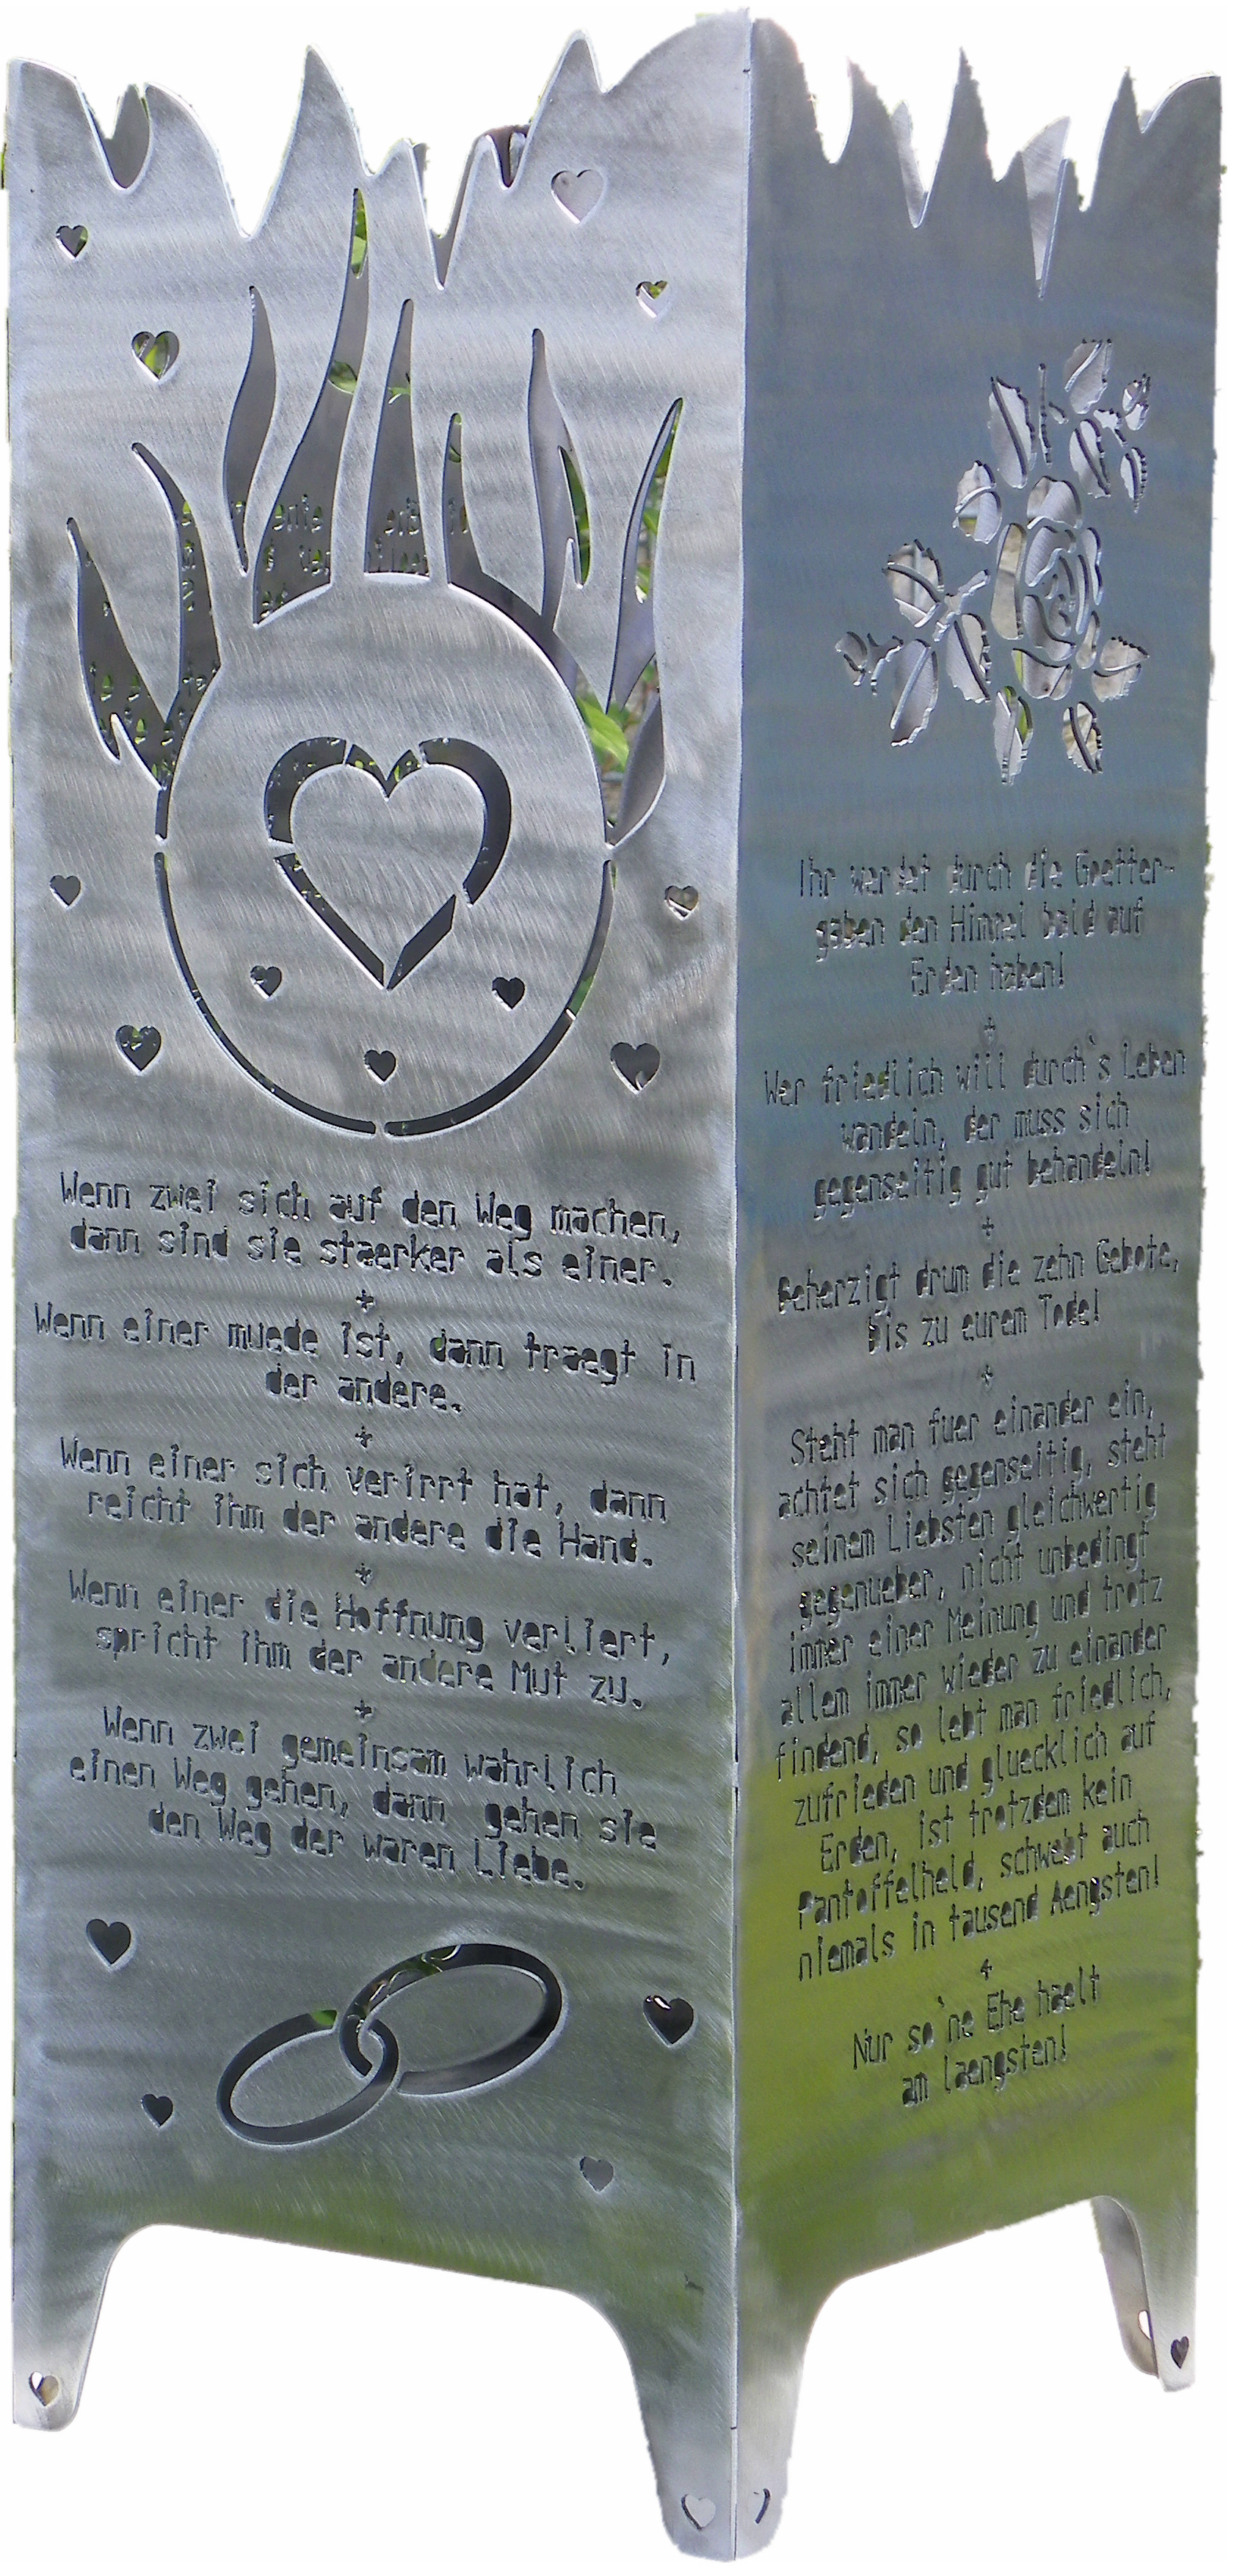 Wenn zwei sich auf den Weg machen,
dann sind sie staerker als einer.
+
Wenn einer muede ist, dann traegt in
der andere.
+
Wenn einer sich verirrt hat, dann
reicht ihm der andere die Hand.
+
Wenn einer die Hoffnung verliert,
spricht ihm der andere Mut zu.
+
Wenn zwei gemeinsam wahrlich
einen Weg gehen, dann gehen sie
den Weg der waren Liebe.
Ihr werdet durch die Goetter-
gaben den Himmel bald auf
Erden haben!
+
Wer friedlich will durch`s Leben
wandeln, der muss sich
gegenseitig gut behandeln!
+
Beherzigt drum die zehn Gebote,
bis zu eurem Tode!
+
Steht man fuer einander ein,
achtet sich gegenseitig, steht
seinem Liebsten gleichwertig
gegenueber, nicht unbedingt
immer einer Meinung und trotz
allem immer wieder zu einander
findend, so lebt man friedlich,
zufrieden und gluecklich auf
Erden, ist trotzdem kein
Pantoffelheld, schwebt auch
niemals in tausend Aengsten!
+
Nur so`ne Ehe haelt
am laengsten!